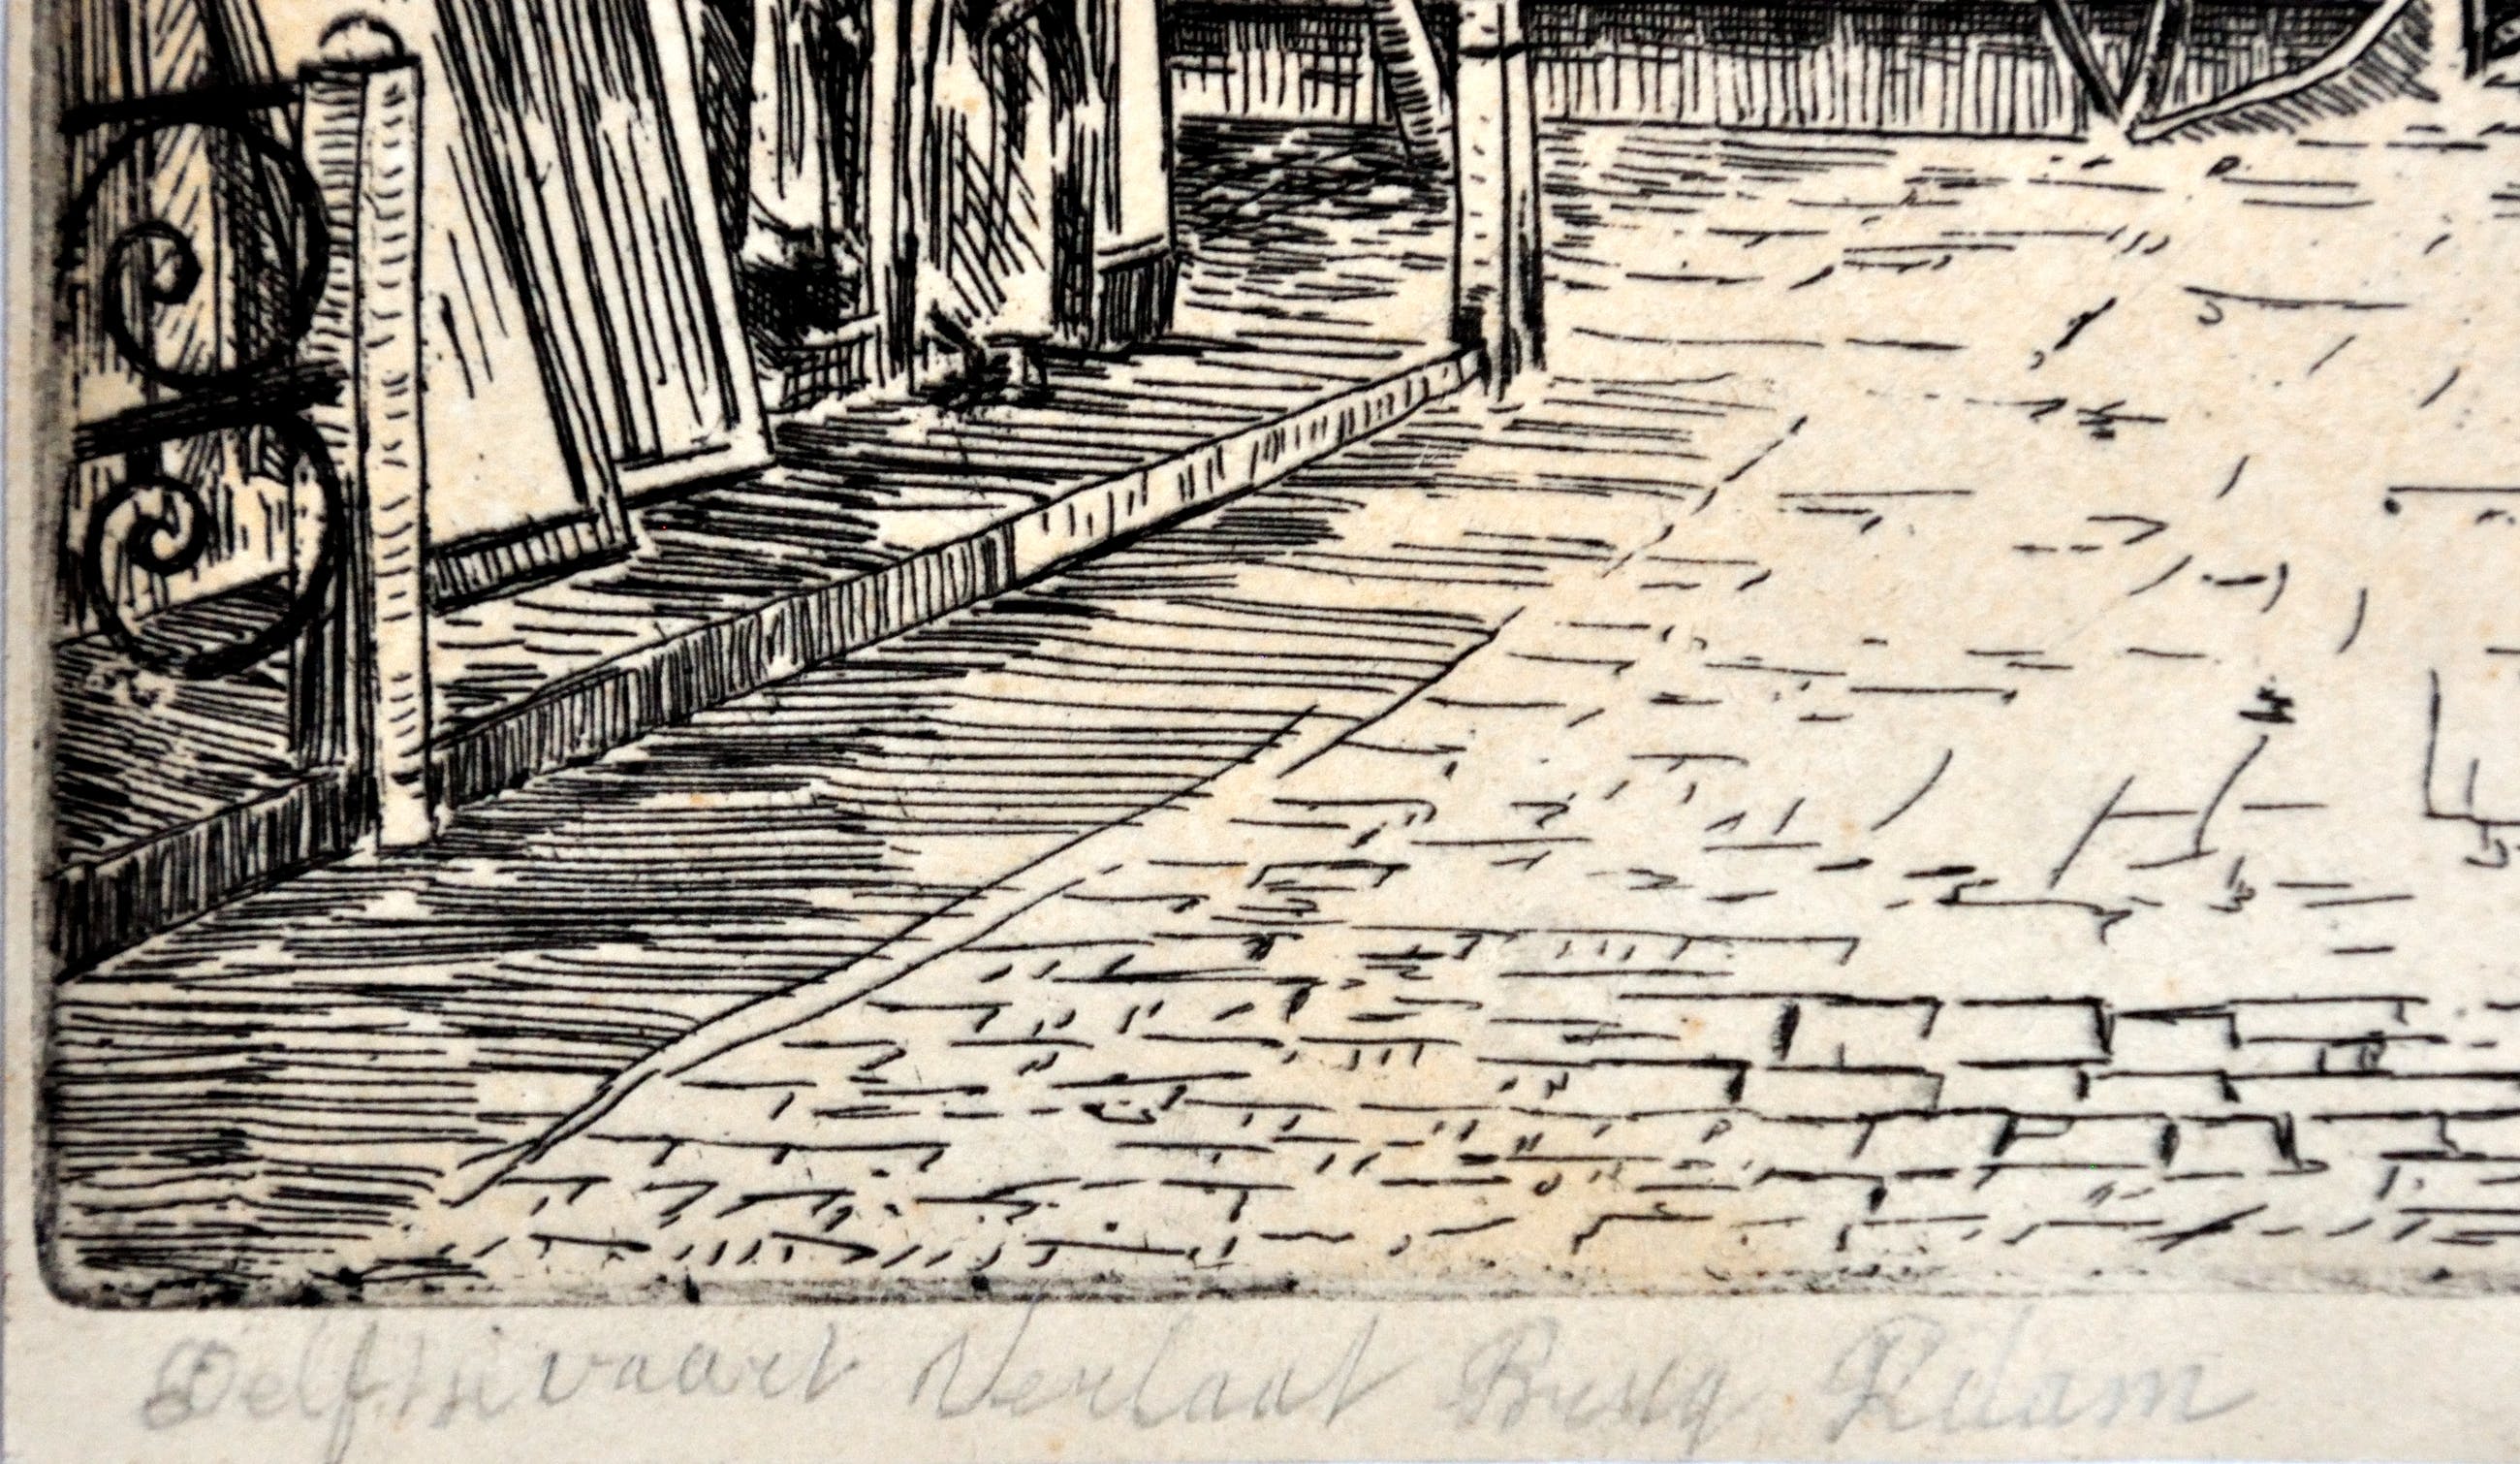 Delftsevaart Verlaat Brug R'dam